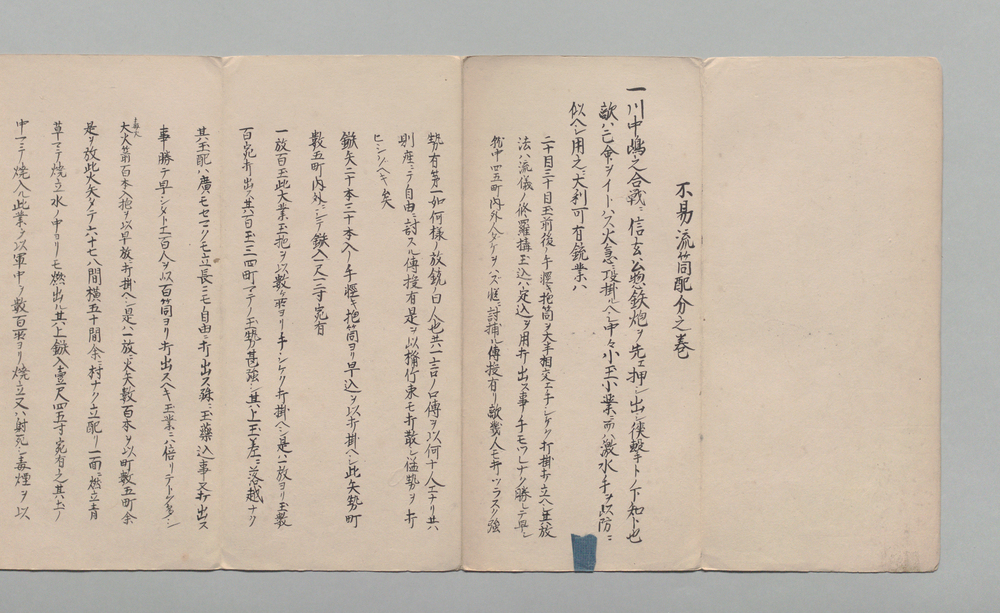 不易流筒配分之巻
一川中嶋之合戦ニ信玄公惣鉄炮ヲ先エ押シ出シ候撃チトノ下知ト也
敵ハ己命ヲイトハス大急攻掛ルヘシ中々小玉小業ニ而ハ激水ヲ手ヲ以防ニ
似ヘシ用之大利可有銃業ハ
二十目三十目玉前後ノ手軽キ抱筒ヲ大半相交エチシケク打掛打立ヘシ其放
法ハ流儀ノ修羅構玉込ハ定込ヲ用打出ス事ノチモツレナク勝レテ早シ
町中四五町内外人タケヲハズ慥ニ討捕ル傳授有リ敵幾人モ打ツラヌク強
勢有第一如何様ノ放銃ノ白人也共一言ノ口傳ヲ以何十人エナリ共
則座ニテノ自由ニ討スル傳授有是ヲ以擶竹束モ打散シ猛勢ヲ打
ヒシツヘキ矣
鉄矢二十本三十本入ノ手軽キ抱筒ヨリ早込ヲ以打掛ヘシ此矢勢町
数五町内外ニシテ鉄入一尺二寸宛有
一放百玉此大業玉抱ヲ以数ヶ所ヨリチシケク打掛ヘシ是ハ一放ヨリ玉数
百宛打出ス共百玉三四町マテノ玉勢甚強シ其上玉差ニ落越ナク
其玉配ハ廣モセマクモ立長ニモノ自由ニ打出ス殊ニ玉薬込事又打出ス
事勝テ早シメト工百人ヲ以百筒ヨリ打出スヘキ玉業ニハ倍リテトク多シ
大火箭百本入抱ヲ以早放打掛ヘシ是ハ一放火矢数百本ヲ以町数五町余
是ヲ放此火矢タテ六十七八間横五十間余ニ村ナク立配リ一面ニ燃立青
草マテ焼立水ノ中ヨリモ燃出ル其上鉄入壹尺四五寸宛有之其土ノ
中マテ焼入ル此業ヲ以軍中ヲ数百所ヨリ焼立又ハ射死シ毒煙ヲ以